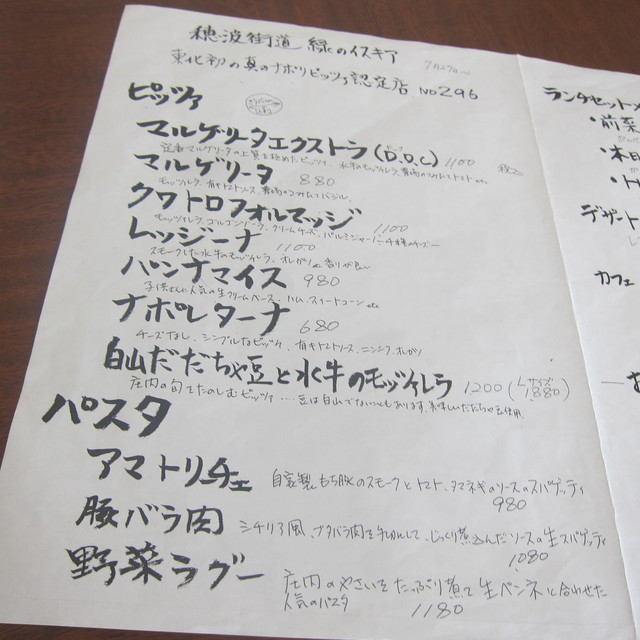 穂波街道 緑のイスキア
7月27日〜
東北初の真のナポリピッツァ認定店 No296
ピッツァ
マルゲリータエクストラ(D.O.C) 1100 税込
マルゲリータ 880
モッツァレラ、有機トマトソース、
クワトロフォルマッジ 1100
モッツァレラ、ゴルゴンゾーラ、クリームチーズ、パルミジャーノ 4種のチーズ
レッジーナ 1100
スモークした水牛のモッツァレラ、オレガノ
パンナマイス 980
子供さんに人気の生クリームベース、ハム、スイートコーン etc
ナポレターナ 680
チーズなし、シンプルなピッツァ、有機トマトソース、ニンニク、オレガノ
白山だだちゃ豆と水牛のモッツァレラ 1200 (Lサイズ 1880)
庄内の旬をたのしむピッツァ…豆は白山でないこともあります、美味しいだだちゃ豆使用
パスタ
アマトリーチェ 自家製もち豚のスモークとトマト、タマネギのソースのスパゲッティ
980
豚バラ肉 シチリア風、ブタバラ肉をやわらかく、じっくり煮込んだソースの生スパゲッティ
1080
野菜ラグー 庄内のやさいをたっぷり煮て生ペンネと合わせた
人気のパスタ 1180
ランチセット
・前菜
デザート
カフェ